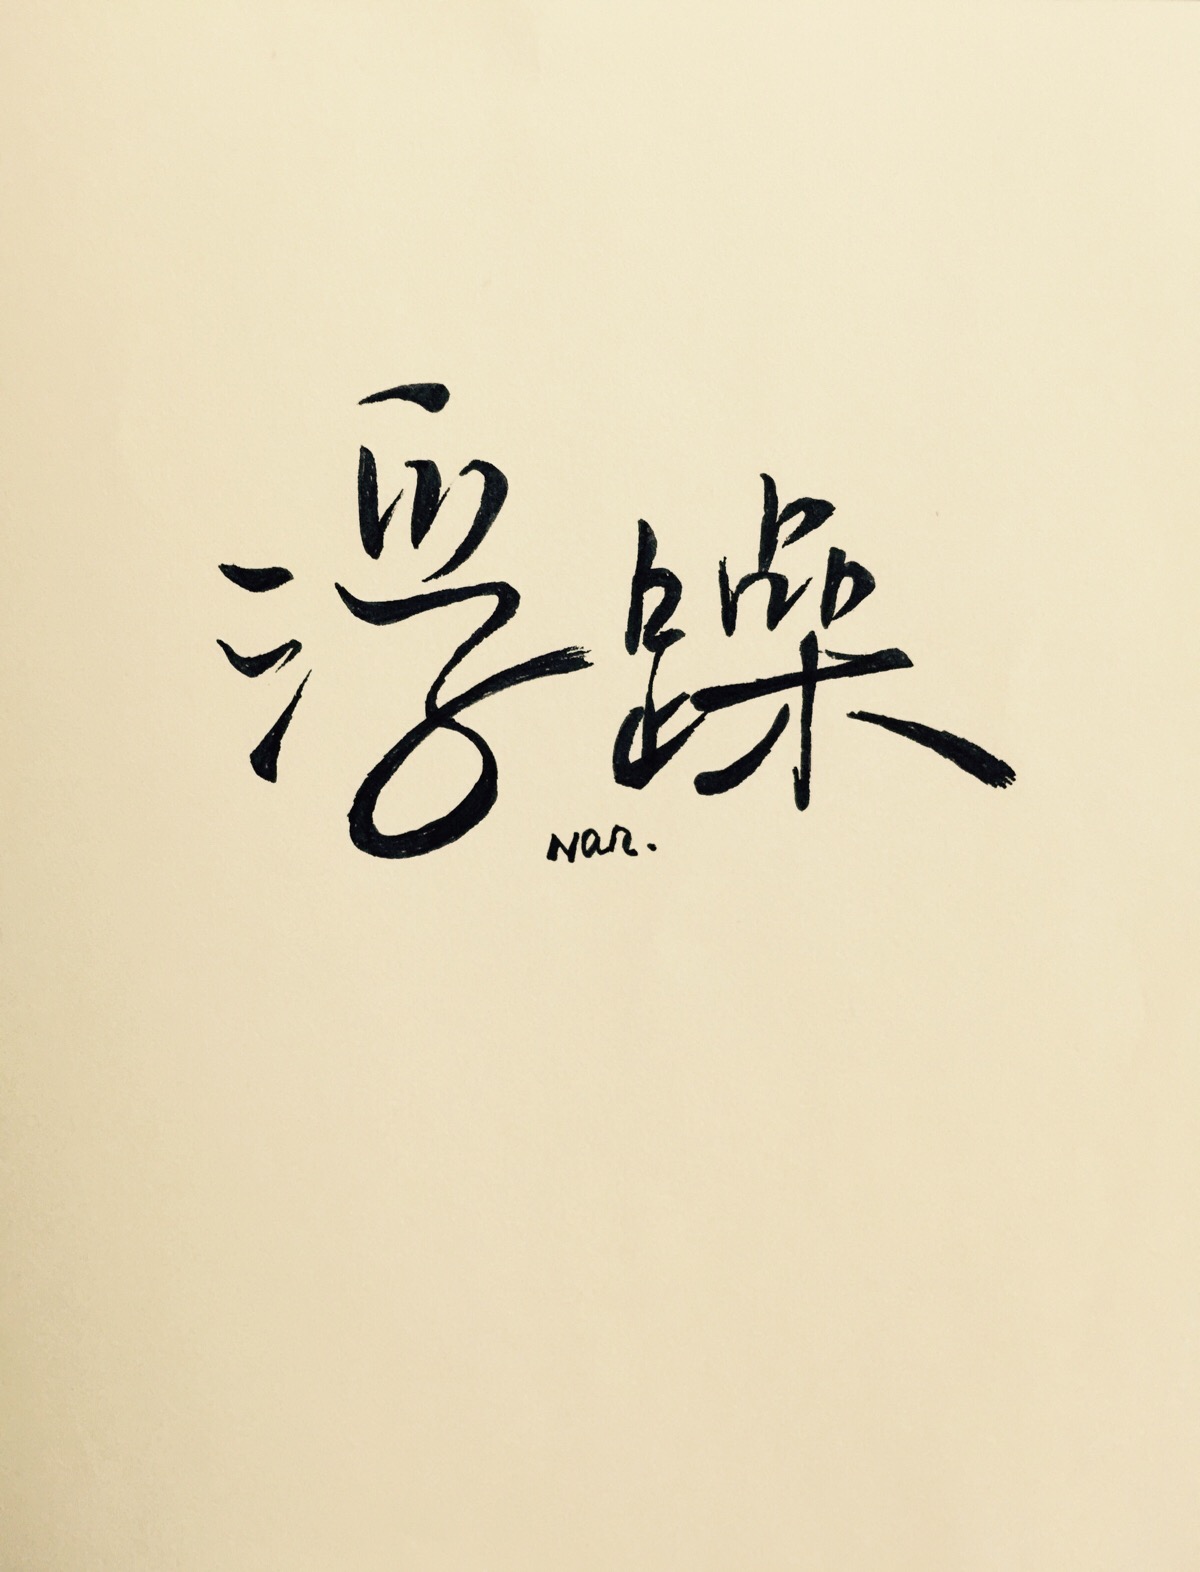 浮躁
Nan.